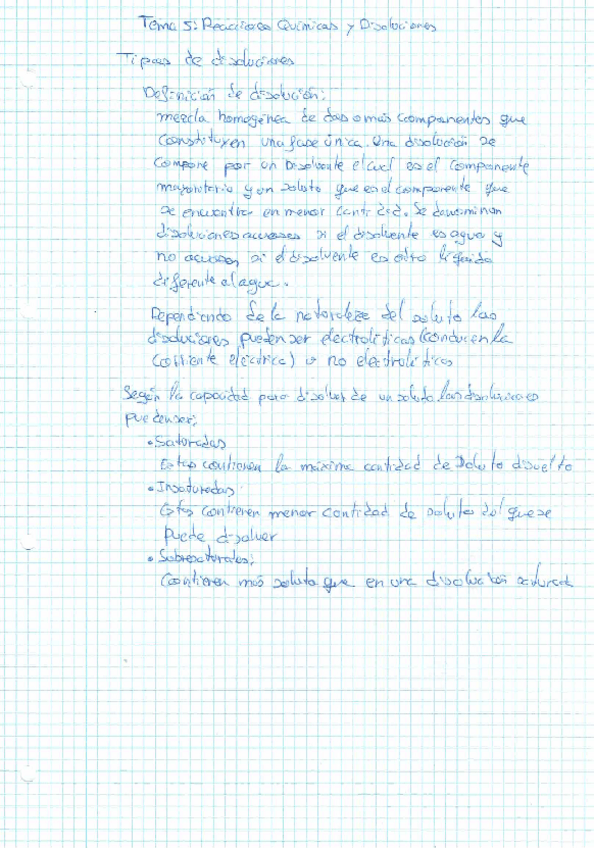 Tema 5: Reacciones Químicas y Disoluciones
Tipos de disoluciones
Definición de disolución:
mezcla homogénea de dos o más componentes que
constituyen una fase única. Una disolución se
compone por un Disolvente el cual es el componente
mayoritario y un soluto que es el componente que
se encuentra en menor cantidad. Se denominan
disoluciones acuosas si el disolvente es agua y
no acuosas si el disolvente es otro líquido
diferente al agua.
Dependiendo de la naturaleza del soluto las
disoluciones pueden ser electrolíticas (conducen la
corriente eléctrica) o no electrolíticas
Según la capacidad para disolver de un soluto las disoluciones
pueden ser:
• Saturadas
Estas contienen la máxima cantidad de Soluto disuelto
• Insaturadas
Estas contienen menor cantidad de soluto del que se
puede disolver
• Sobresaturadas:
Contienen más soluto que en una disolución saturada